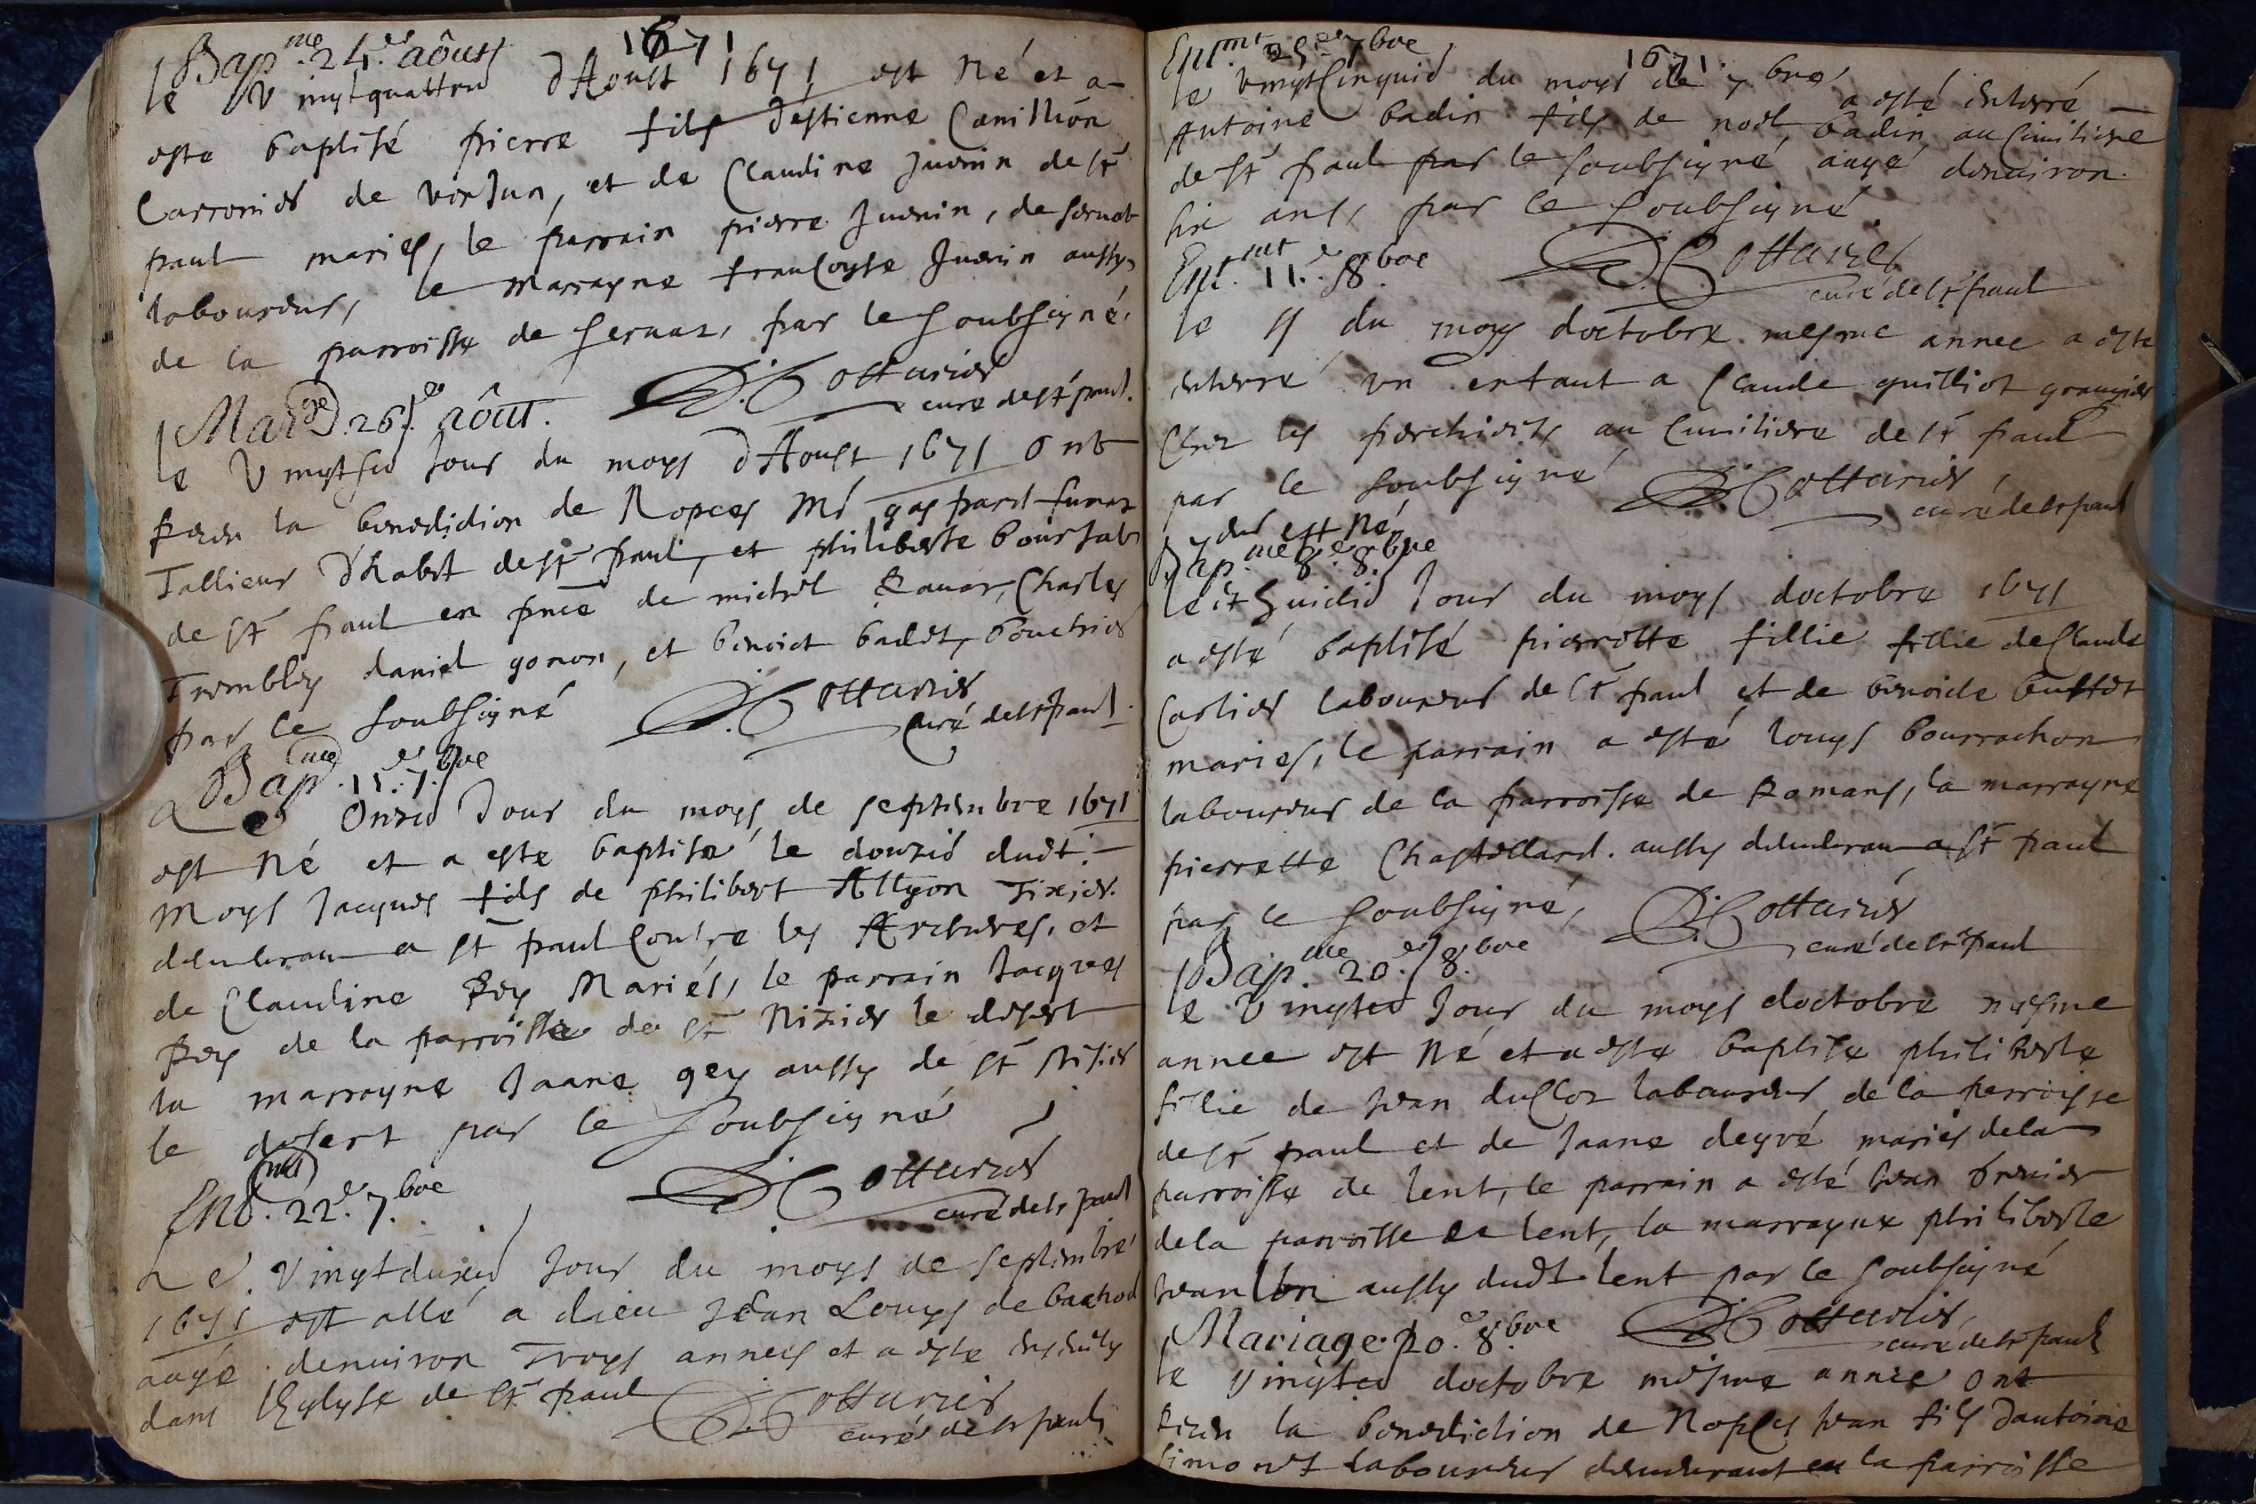 1671
Bap.me 24.e aôust
le Vingtquattre d'Aoust 1671 est Né et a
este baptisé pierre fils d'estienne Canillion
Carronier de verjun, et de Claudine Juenin de St
paul mariés, le parrain pierre Juenin, de servat
laboureur, le marrayne francoyse Juenin aussy
de la parroisse de servat, par le soubsigné,
D. Cottarier
curé de St paul.
Mar.ge 26.e aôut.
le Vingtsix Jour du moys d'Aoust 1671 ont
Receu la benediction de Nopces Me gaspard
Tallieur d'habit de St paul, et philiberte
de St paul en pnce de michel Ravat, Charles
Trembley daniel gonon, et benoict badet, bouchier
par le soubsigné
D. Cottarier
Curé de St paul.
Bap.me 11.e 7.bre
Le Onze Jour du moys de septembre 1671
est Né et a este baptisé le douzie dudt.
Moys Jacques fils de philibert Allyon Tixier.
demeurant a St paul Contre les Archeres, et
de Claudine Rey Mariés, le parrain Jacques
Rey de la parroisse de St Nizier le desert
la marrayne Jaane gey aussy de St Nisier
le desert par le soubsigné
D. Cottarier
curé de St paul
Ent.mt 22.e 7.bre
Le Vingtduxie Jour du moys de septembre
1671 est allé a dieu Jean Louys de bachod
aagé denuiron Troys annees et a este
dans l'Eglyse de St paul
D. Cottarier
curé de St paul
1671
Ent.mt 25.e 7bre
le Vingtcinquie du moys de 7bre, a esté enterré
Antoine badin fils de noel badin au Cimitiere
de St paul par le soubsigné aagé denuiron
six ans, par le soubsigné
D. Cottarier
curé de St paul
Ent.mt 11.e 8.bre
le 11 du moys doctobre mesme annee a este
enterré un enfant a Claude guilliot grangier
Chez les au Cimitiere de St paul
par le soubsigné
D. Cottarier
curé de St paul
est Né
Bap.me 8.e 8.bre
le huictie Jour du moys doctobre 1671
a esté baptisé pierrette fillie fillie de Claude
Carlier laboureur de St paul et de benoiste
mariés, le parrain a esté louys bourrachon
laboureur de la parroisse de Romans, la marrayne
pierrette Chastellard. aussy demeurant a St paul
par le soubsigné,
D. Cottarier
curé de St paul
Bap.me 20.e 8.bre
le Vingtie Jour du moys doctobre mesme
annee est Né et a este baptise philiberte
fillie de Jean duclos laboureur de la perroisse
de St paul et de Jaane deyré mariés de la
parroisse de lent, le parrain a esté Jean
de la parroisse de lent, la marrayne philiberte
aussy dudt lent par le soubsigné
D. Cottarier
curé de St paul
Mariage. 20.e 8.bre
le Vingtie doctobre mesme annee ont
Receu la benediction de Nopces Jean fils dantoine
simonet laboureur demeurant en la parroisse